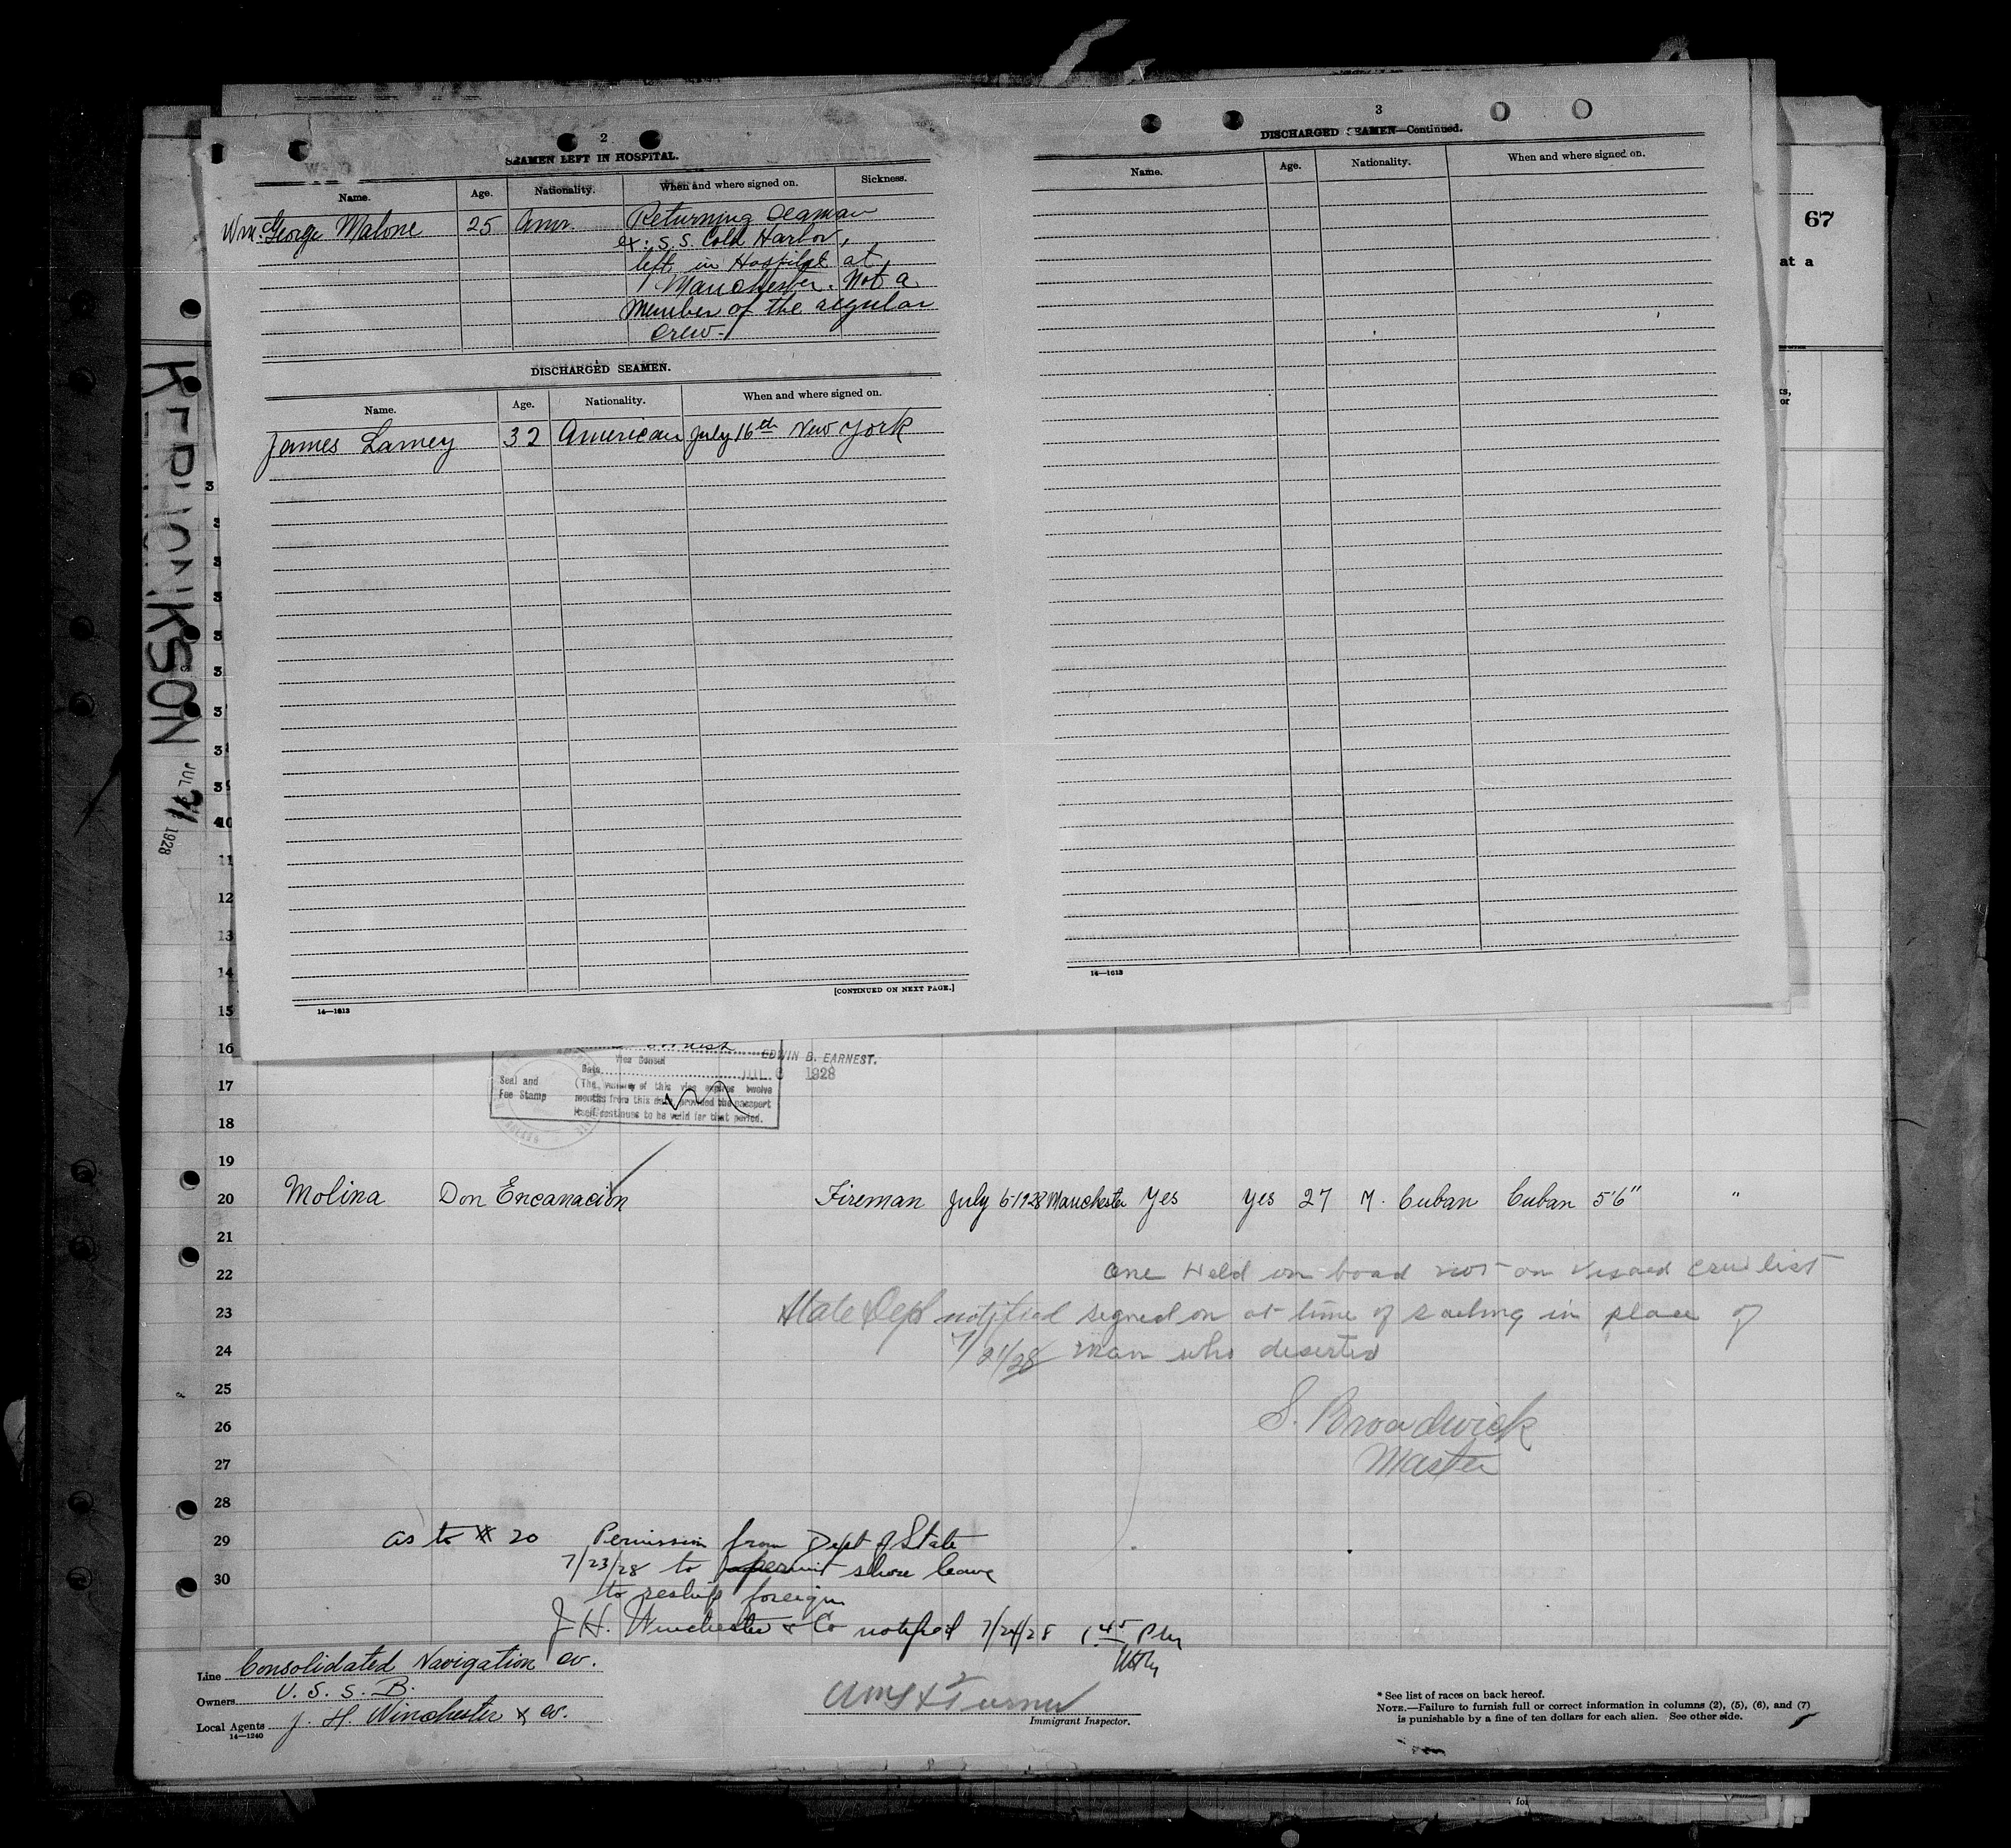 2
SEAMEN LEFT IN HOSPITAL.
Name. Age. Nationality. When and where signed on. Sickness.
Wm. George Malone 25 Amr. Returning Seaman
ex: S.S. Cold Harbor,
left in Hospital at
Manchester. Not a
Member of the regular
crew.
DISCHARGED SEAMEN.
Name. Age. Nationality. When and where signed on.
James Lamey 32 American July 16th New York
[CONTINUED ON NEXT PAGE.]
14—1613
3
DISCHARGED SEAMEN—Continued.
Name. Age. Nationality. When and where signed on.
14—1613
67
at a
or
SON
JUL 1928
3
3
3
3
3
3
3
3
39
40
11
12
13
14
15
16
17
18
19
Vice Consul
EDWIN B. EARNEST.
Date 1928
Seal and
Fee Stamp
(The validity of this visa expires twelve
months from this date provided the passport
itself continues to be valid for that period.
20 Molina Don Encanacion Fireman July 6-1928 Manchester Yes Yes 27 M. Cuban Cuban 5'6" "
21
22 One Held on board not on visaed crew list
23 State Dept notified signed on at time of sailing in place of
24 7/21/28 man who deserted
25
26 S. Broadwick
27 Master
28
29 as to # 20 Permission from Dept of State
7/23/28 to permit shore leave
30 to reship foreign
J. H. Winchester & Co notified 7/24/28 1.45 PM
Line Consolidated Navigation Co.
Owners U. S. S. B.
Local Agents J. H. Winchester & Co.
14—1240
Turner
Immigrant Inspector.
* See list of races on back hereof.
NOTE.—Failure to furnish full or correct information in columns (2), (5), (6), and (7)
is punishable by a fine of ten dollars for each alien. See other side.
for